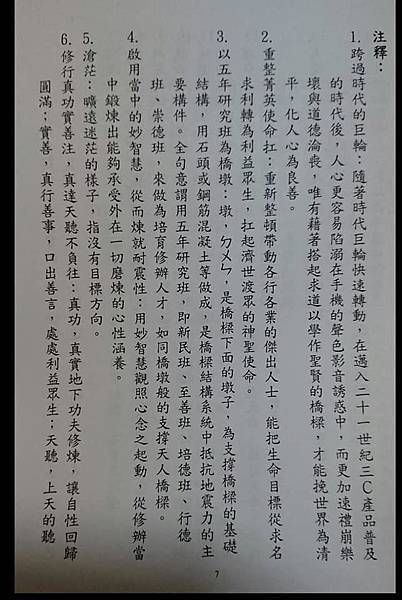 注釋：
1. 跨過時代的巨輪：隨著時代巨輪快速轉動，在邁入二十一世紀三C產品普及
的時代後，人心更容易陷溺在手機的聲色影音誘惑中，而更加速禮崩樂
壞與道德淪喪，唯有藉著搭起求道以學作聖賢的橋樑，才能挽世界為清
平，化人心為良善。
2. 重整菁英使命扛：重新整頓帶動各行各業的傑出人士，能把生命目標從求名
求利轉為利益眾生，扛起濟世渡眾的神聖使命。
3. 以五年研究班為橋墩：墩，ㄉㄨㄣ，是橋樑下面的墩子，為支撐橋樑的基礎
結構，用石頭或鋼筋混凝土等做成，是橋樑結構系統中抵抗地震力的主
要構件。全句意謂用五年研究班，即新民班、至善班、培德班、行德
班、崇德班，來做為培育修辦人才，如同橋墩般的支撐天人橋樑。
4. 啟用當中的妙智慧，從而煉就耐震性：用妙智慧觀照心念之起動，從修辦當
中鍛煉出能夠承受外在一切磨煉的心性涵養。
5. 滄茫：曠遠迷茫的樣子，指沒有目標方向。
6. 修行真功實善注，真達天聽不負往：真功，真實地下功夫修煉，讓自性回歸
圓滿；實善，真行善事，口出善言，處處利益眾生；天聽，上天的聽
7